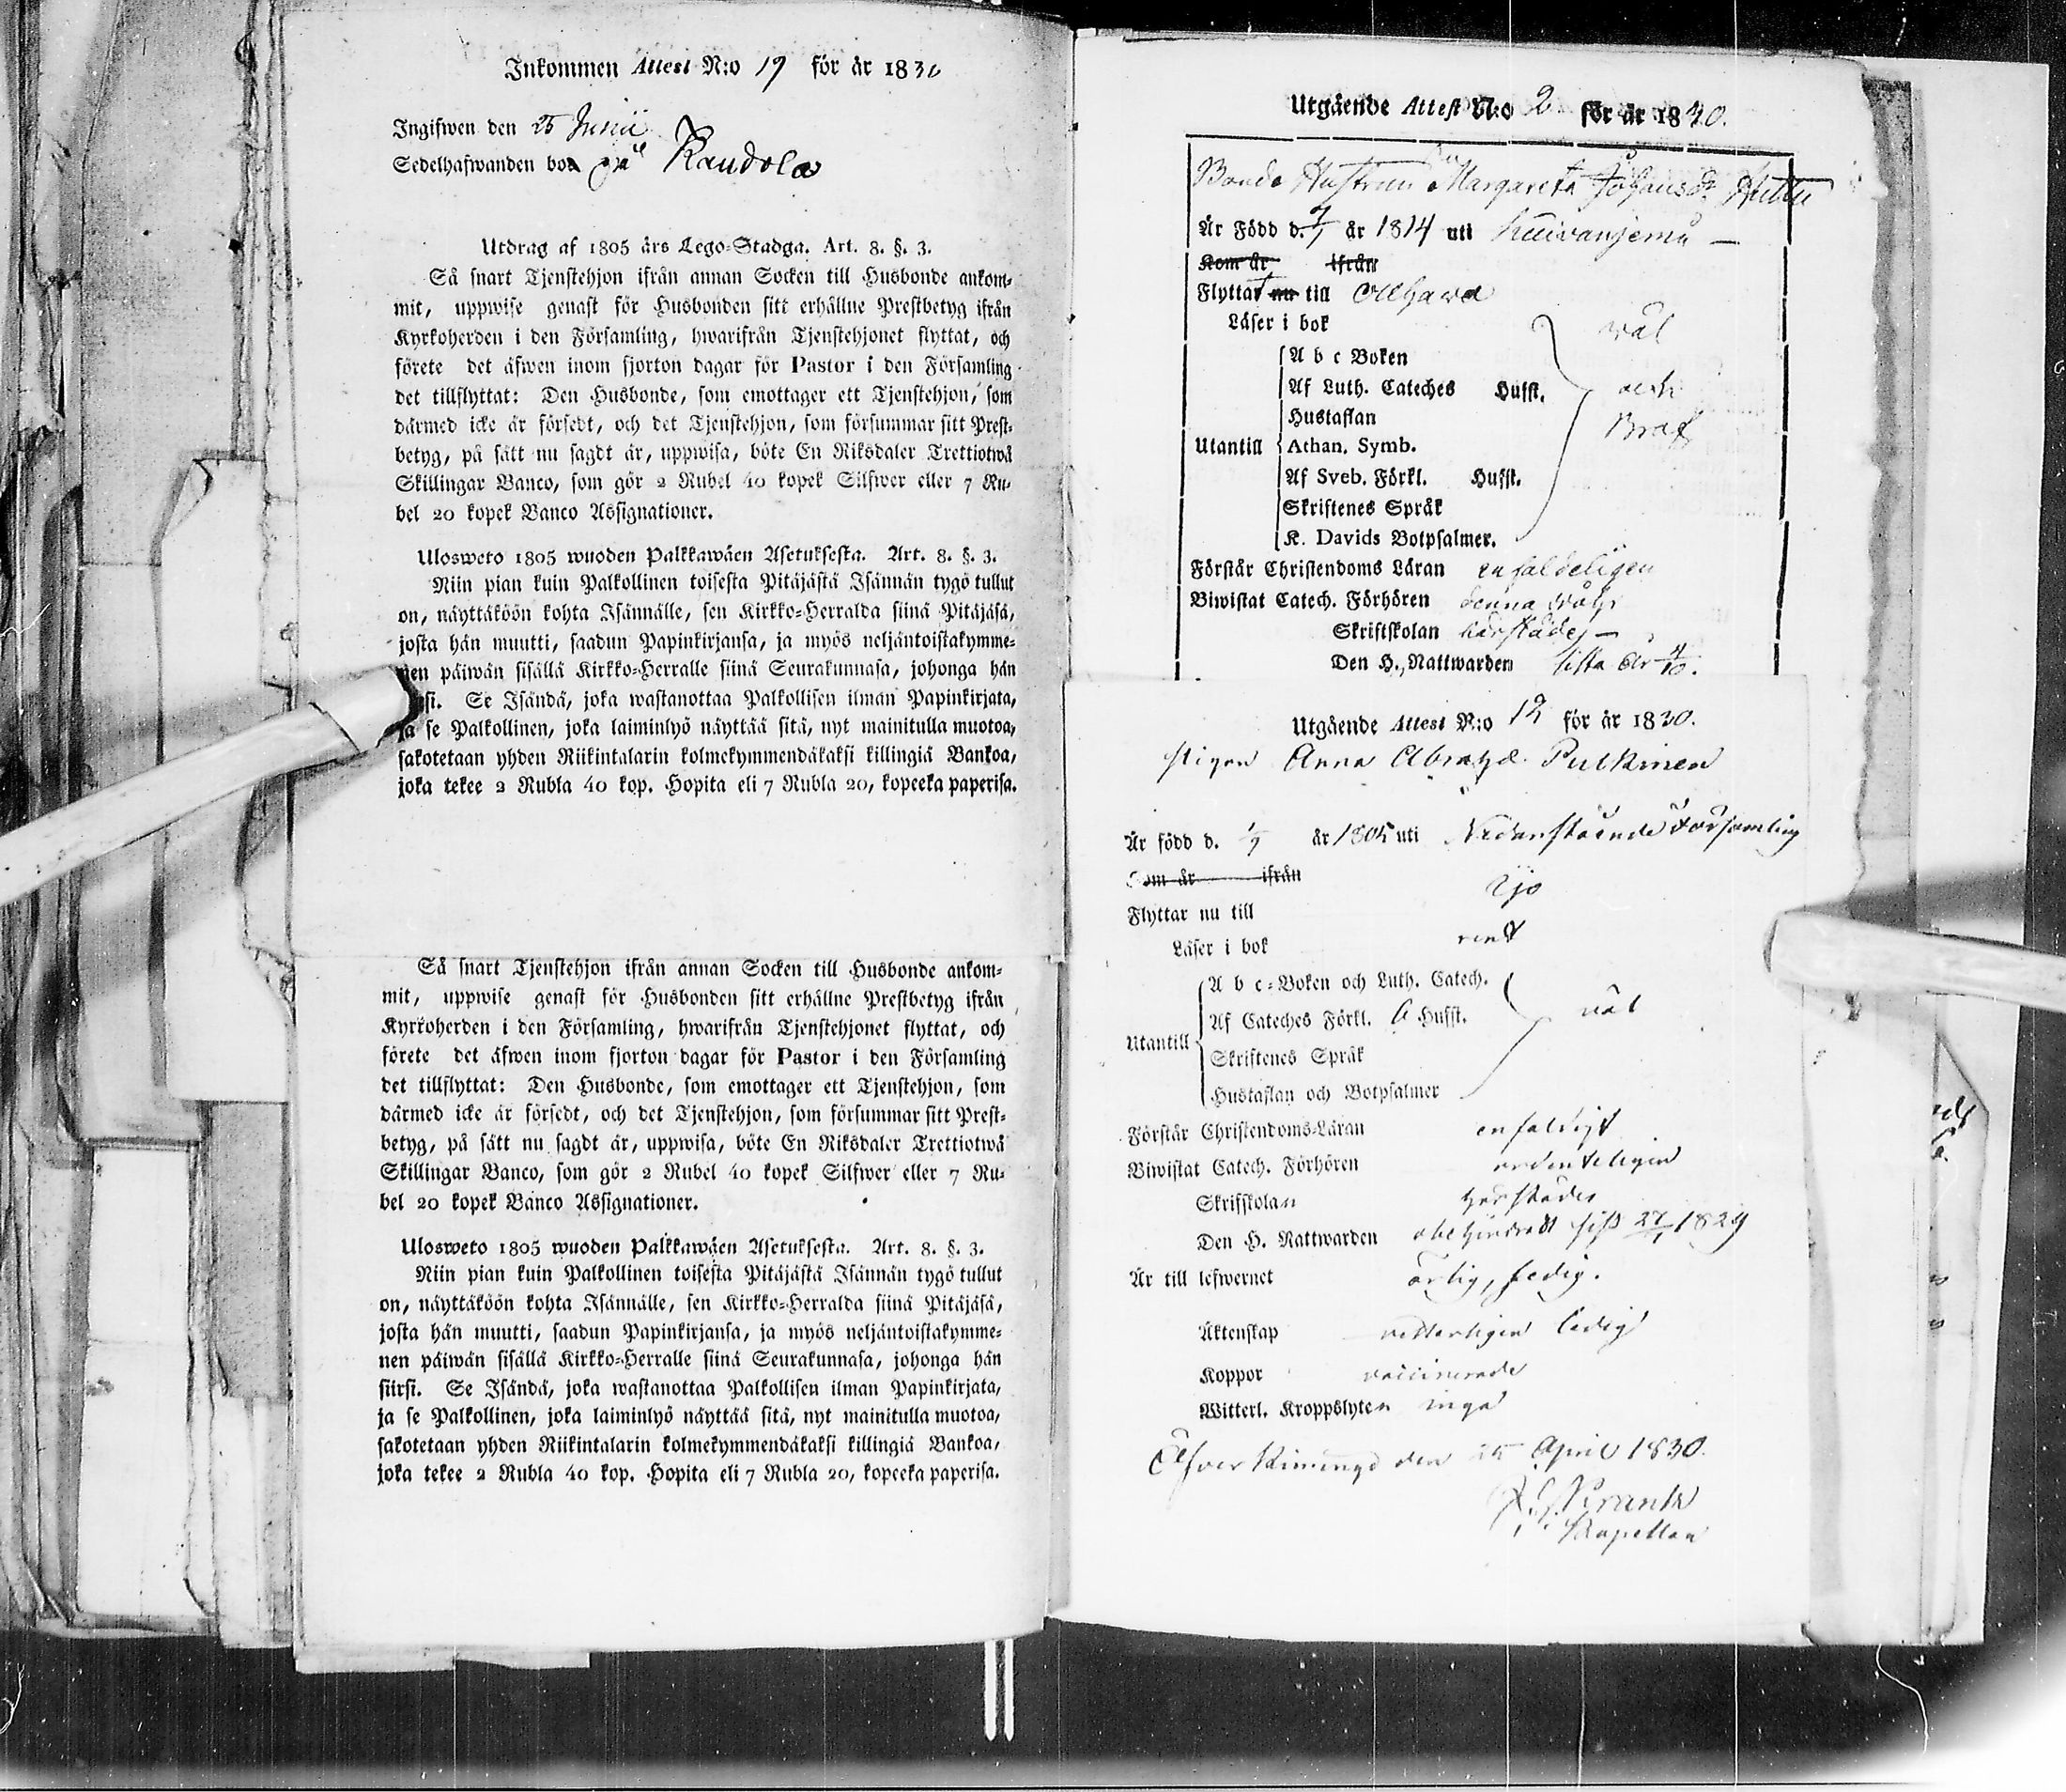 Inkommen Attest N:o 19 för år 1830
Ingifwen den 25 Junii
Sedelhafwanden bor på Raudola
Utdrag af 1805 års Lego-Stadga. Art. 8. §. 3.
Så snart Tjenstehjon ifrån annan Socken till Husbonde ankom-
mit, uppwise genast för Husbonden sitt erhållne Prestbetyg ifrån
Kyrkoherden i den Församling, hwarifrån Tjenstehjonet flyttat, och
förete det äfwen inom fjorton dagar för Pastor i den Församling
det tillflyttat: Den Husbonde, som emottager ett Tjenstehjon, som
därmed icke är försedt, och det Tjenstehjon, som försummar sitt Prest-
betyg, på sätt nu sagdt är, uppwisa, böte En Riksdaler Trettiotwå
Skillingar Banco, som gör 2 Rubel 40 kopek Silfwer eller 7 Ru-
bel 20 kopek Banco Assignationer.
Ulosweto 1805 wuoden Palkkawäen Asetuksesta. Art. 8. §. 3.
Niin pian kuin Palkollinen toisesta Pitäjästä Isännän tygö tullut
on, näyttäköön kohta Isännälle, sen Kirkko-Herralda siinä Pitäjäsä,
josta hän muutti, saadun Papinkirjansa, ja myös neljäntoistakymme-
nen päiwän sisällä Kirkko-Herralle siinä Seurakunnasa, johonga hän
si. Se Isändä, joka wastanottaa Palkollisen ilman Papinkirjata,
ja se Palkollinen, joka laiminlyö näyttää sitä, nyt mainitulla muotoa,
sakotetaan yhden Riikintalarin kolmekymmendäkaksi killingiä Bankoa,
joka tekee 2 Rubla 40 kop. Hopita eli 7 Rubla 20, kopeeka paperisa.
Så snart Tjenstehjon ifrån annan Socken till Husbonde ankom-
mit, uppwise genast för Husbonden sitt erhållne Prestbetyg ifrån
Kyrkoherden i den Församling, hwarifrån Tjenstehjonet flyttat, och
förete det äfwen inom fjorton dagar för Pastor i den Församling
det tillflyttat: Den Husbonde, som emottager ett Tjenstehjon, som
därmed icke är försedt, och det Tjenstehjon, som försummar sitt Prest-
betyg, på sätt nu sagdt är, uppwisa, böte En Riksdaler Trettiotwå
Skillingar Banco, som gör 2 Rubel 40 kopek Silfwer eller 7 Ru-
bel 20 kopek Banco Assignationer.
Ulosweto 1805 wuoden Palkkawäen Asetuksesta. Art. 8. §. 3.
Niin pian kuin Palkollinen toisesta Pitäjästä Isännän tygö tullut
on, näyttäköön kohta Isännälle, sen Kirkko-Herralda siinä Pitäjäsä,
josta hän muutti, saadun Papinkirjansa, ja myös neljäntoistakymme-
nen päiwän sisällä Kirkko-Herralle siinä Seurakunnasa, johonga hän
siirsi. Se Isändä, joka wastanottaa Palkollisen ilman Papinkirjata,
ja se Palkollinen, joka laiminlyö näyttää sitä, nyt mainitulla muotoa,
sakotetaan yhden Riikintalarin kolmekymmendäkaksi killingiä Bankoa,
joka tekee 2 Rubla 40 kop. Hopita eli 7 Rubla 20, kopeeka paperisa.
Utgående Attest N:o 2 för år 1830.
Bonde Hustrun Margareta Johansdr Huttu
Är Född d. år 1814 uti
Kom år ifrån
Flyttat nu till
Läser i bok wäl
A b c Boken
Af Luth. Cateches Hufst. och
Hustaflan Braf
Utantill Athan. Symb.
Af Sveb. Förkl. Hufst.
Skriftenes Språk
K. Davids Botpsalmer.
Förstår Christendoms Läran enfaldeligen
Biwistat Catech. Förhören denna
Skriftskolan härstädes
Den H. Nattwarden sista
Utgående Attest N:o 12 för år 1830.
Pigan Anna Abrahsd. Pulkinen
Är född d. 1/9 år 1805 uti Nedanstående Församling
Kom år ifrån
Flyttar nu till Ijo
Läser i bok rent
A b c-Boken och Luth. Catech.
Af Cateches Förkl. 6 Hufst. wäl
Utantill
Skriftenes Språk
Hustaflan och Botpsalmer
Förstår Christendoms-Läran enfaldigt
Biwistat Catech. Förhören ordenteligen
Skrifskolan härstädes
Den H. Nattwarden obehindradt sist 27/ 1829
Är till lefwernet ärlig, sedig.
Äktenskap witterligen ledig
Koppor vaccinerade
Witterl. Kroppslyten inga
Öfver Kiminge den 25 April 1830.
Krank
Kapellan